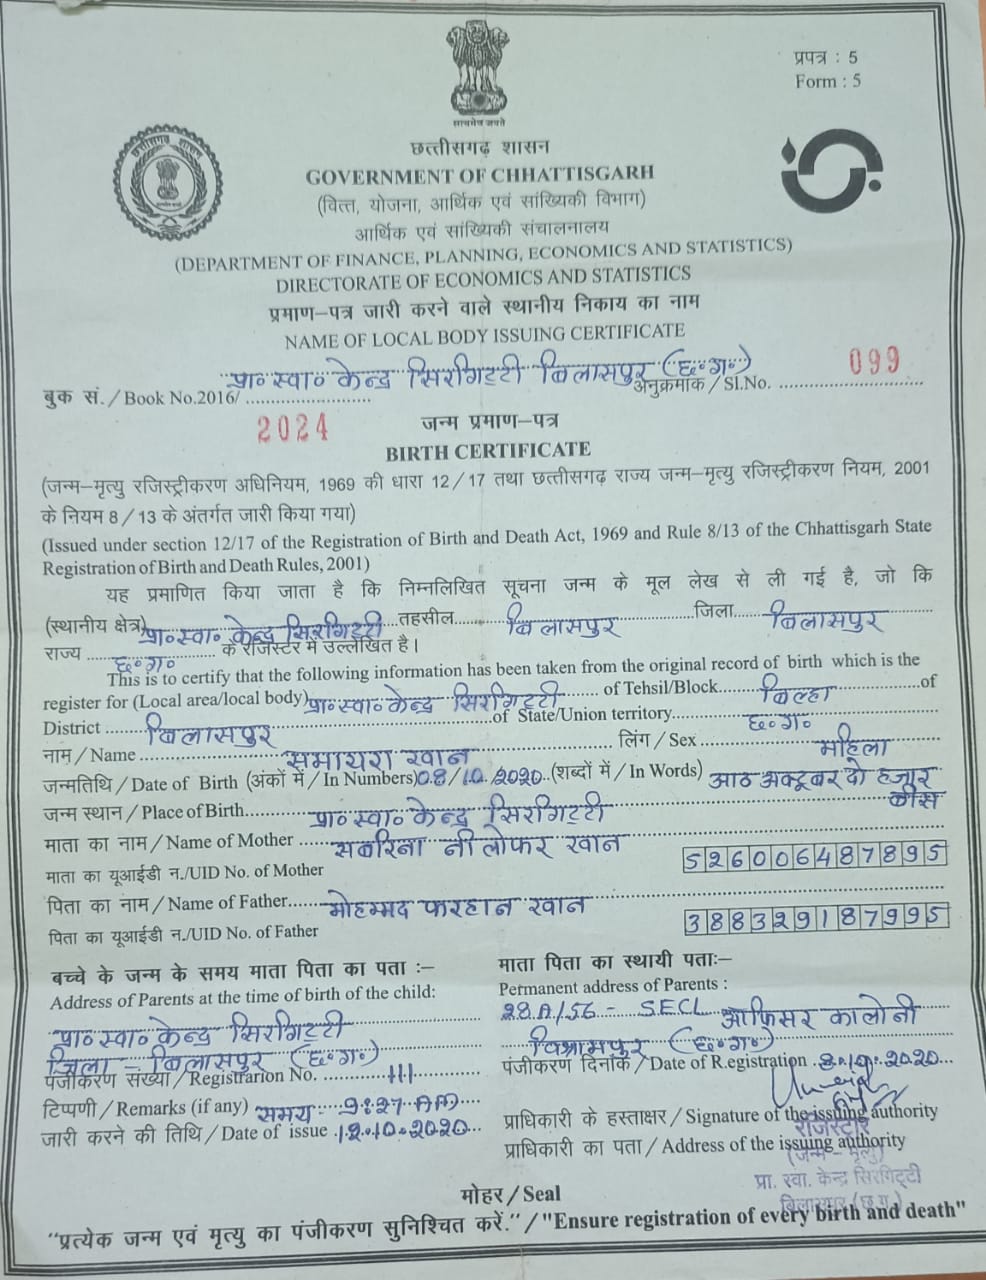 प्रपत्र : 5
Form : 5
सत्यमेव जयते
छत्तीसगढ़ शासन
छत्तीसगढ़ शासन
GOVERNMENT OF CHHATTISGARH
(वित्त, योजना, आर्थिक एवं सांख्यिकी विभाग)
आर्थिक एवं सांख्यिकी संचालनालय
(DEPARTMENT OF FINANCE, PLANNING, ECONOMICS AND STATISTICS)
DIRECTORATE OF ECONOMICS AND STATISTICS
प्रमाण–पत्र जारी करने वाले स्थानीय निकाय का नाम
NAME OF LOCAL BODY ISSUING CERTIFICATE
प्रा० स्वा० केन्द्र सिरगिट्टी बिलासपुर (छ०ग०)
बुक सं. / Book No.2016/ 2024 अनुक्रमांक / Sl.No. 099
जन्म प्रमाण–पत्र
BIRTH CERTIFICATE
(जन्म–मृत्यु रजिस्ट्रीकरण अधिनियम, 1969 की धारा 12/17 तथा छत्तीसगढ़ राज्य जन्म–मृत्यु रजिस्ट्रीकरण नियम, 2001
के नियम 8/13 के अंतर्गत जारी किया गया)
(Issued under section 12/17 of the Registration of Birth and Death Act, 1969 and Rule 8/13 of the Chhattisgarh State
Registration of Birth and Death Rules, 2001)
यह प्रमाणित किया जाता है कि निम्नलिखित सूचना जन्म के मूल लेख से ली गई है, जो कि
(स्थानीय क्षेत्र) प्रा० स्वा० केन्द्र सिरगिट्टी तहसील बिलासपुर जिला बिलासपुर
राज्य छ०ग० के रजिस्टर में उल्लेखित है।
This is to certify that the following information has been taken from the original record of birth which is the
register for (Local area/local body) प्रा० स्वा० केन्द्र सिरगिट्टी of Tehsil/Block बिल्हा of
District बिलासपुर of State/Union territory छ०ग०
नाम / Name समायरा खान लिंग / Sex महिला
जन्मतिथि / Date of Birth (अंकों में / In Numbers) 08/10/2020 (शब्दों में / In Words) आठ अक्टूबर दो हजार
बीस
जन्म स्थान / Place of Birth प्रा० स्वा० केन्द्र सिरगिट्टी
माता का नाम / Name of Mother सबरिना नीलोफर खान
माता का यूआईडी न./UID No. of Mother 526006487895
पिता का नाम / Name of Father मोहम्मद फरहान खान
पिता का यूआईडी न./UID No. of Father 388329187995
बच्चे के जन्म के समय माता पिता का पता :–
Address of Parents at the time of birth of the child:
प्रा० स्वा० केन्द्र सिरगिट्टी
जिला – बिलासपुर (छ०ग०)
माता पिता का स्थायी पताः–
Permanent address of Parents :
28.A/56 – SECL आफिसर कालोनी
विश्रामपुर (छ०ग०)
पंजीकरण संख्या / Registrarion No. 111
पंजीकरण दिनांक / Date of R.egistration 8.10.2020
टिप्पणी / Remarks (if any) समय 9:27 AM
जारी करने की तिथि / Date of issue 12.10.2020
प्राधिकारी के हस्ताक्षर / Signature of the issuing authority
प्राधिकारी का पता / Address of the issuing authority
रजिस्ट्रार
(जन्म – मृत्यु)
प्रा. स्वा. केन्द्र सिरगिट्टी
बिलासपुर (छ.ग.)
मोहर / Seal
"प्रत्येक जन्म एवं मृत्यु का पंजीकरण सुनिश्चित करें." / "Ensure registration of every birth and death"